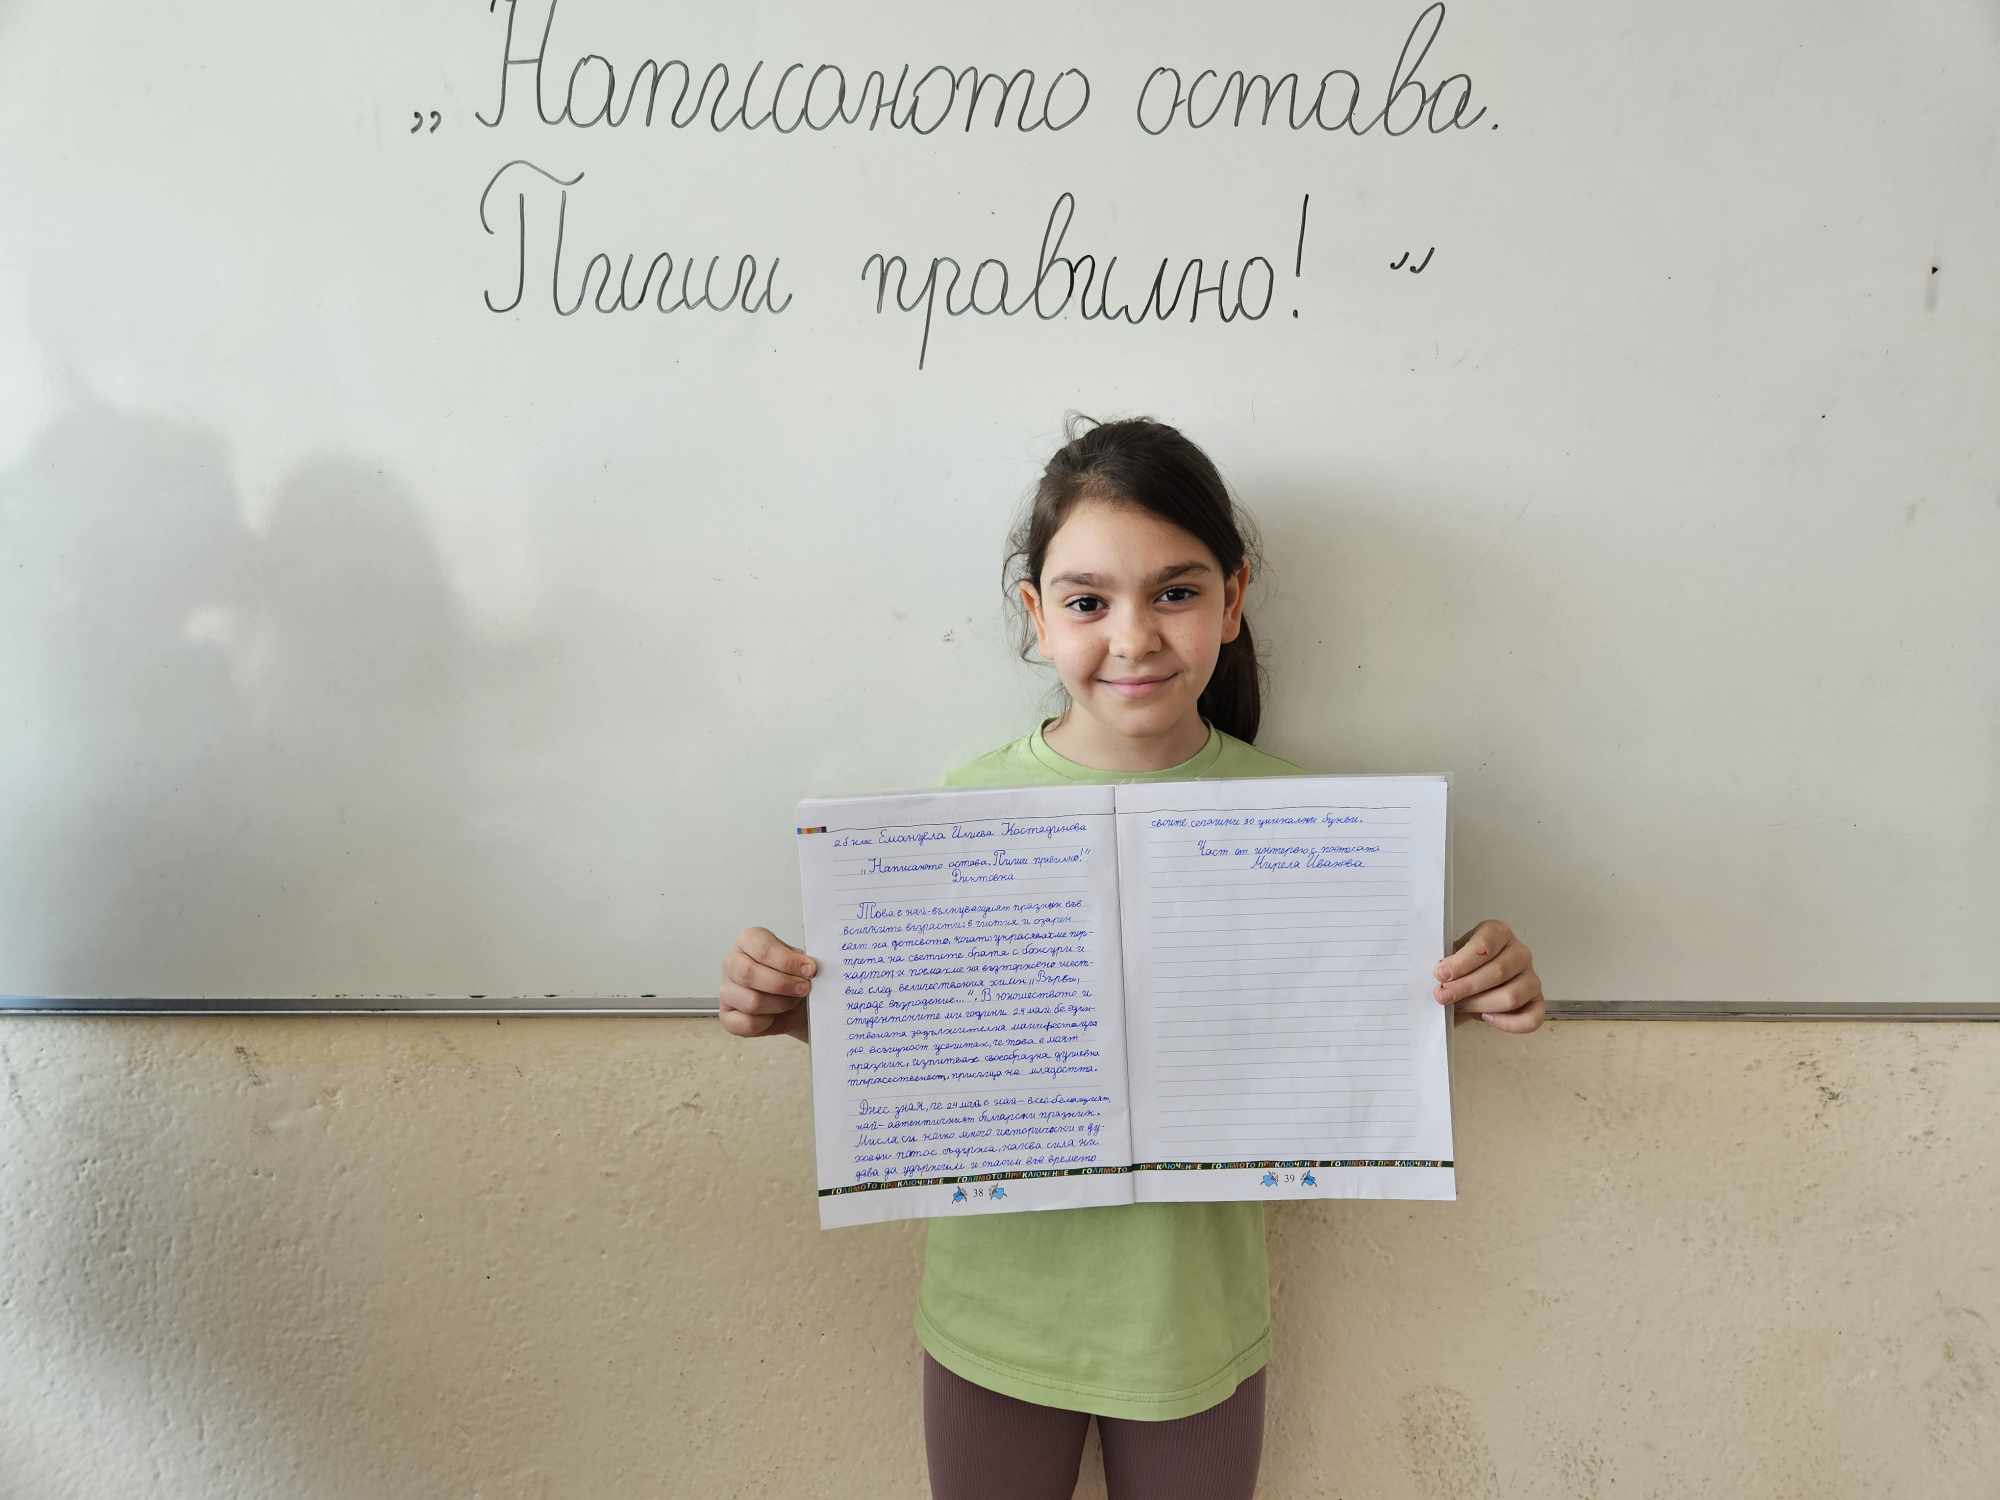 „Написаното остава.
Пиши правилно!“
2 б клас Емануела Илиева Костадинова
„Написаното остава. Пиши правилно!“
Диктовка
Това е най-вълнуващият празник във
всичките възрасти: в чистия и озарен
свят на детството, когато украсявахме пор-
трета на светите братя с божури и
картон и поемахме на възторжено шест-
вие след величествения химн „Върви,
народе възродение...“. В юношеството и
студентските ми години 24 май бе един-
ствената задължителна манифестация
, но всъщност усещах, че това е моят
празник, изпитвах своеобразна душевна
тържественост, присъща на младостта.
Днес зная, че 24 май е най-всебългарският
най-автентичният български празник.
Мисля си колко много исторически и ду-
ховен патос съдържа, каква сила ни
дава да удържим и спасим във времето
ГОЛЯМОТО ПРИКЛЮЧЕНИЕ ГОЛЯМОТО ПРИКЛЮЧЕНИЕ ГОЛЯМОТО
38
своите сегашни 30 уникални букви.
Част от интервю с поетесата
Мирела Иванова
ПРИКЛЮЧЕНИЕ ГОЛЯМОТО ПРИКЛЮЧЕНИЕ ГОЛЯМОТО ПРИКЛЮЧЕНИЕ
39